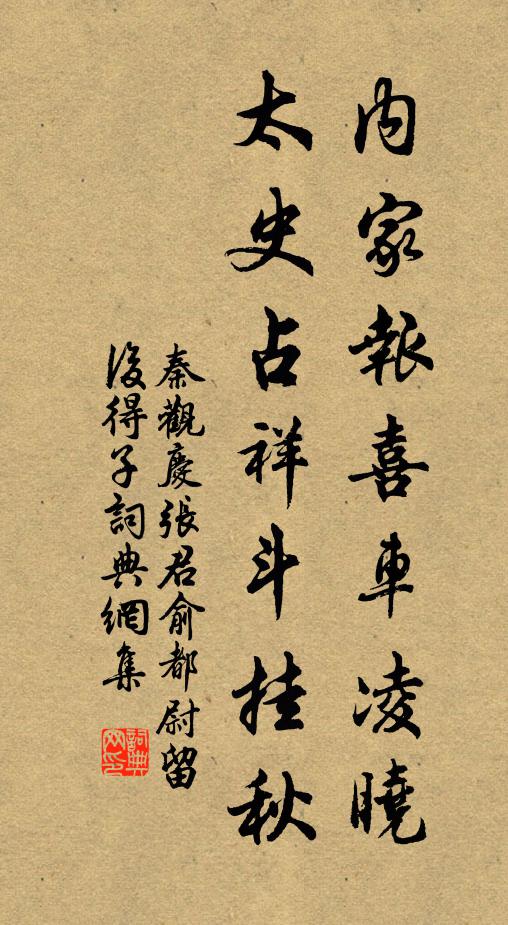 内家報喜車凌曉
太史占祥斗挂秋
秦觀慶張君俞都尉留
後得子詞典網集
詞典网印